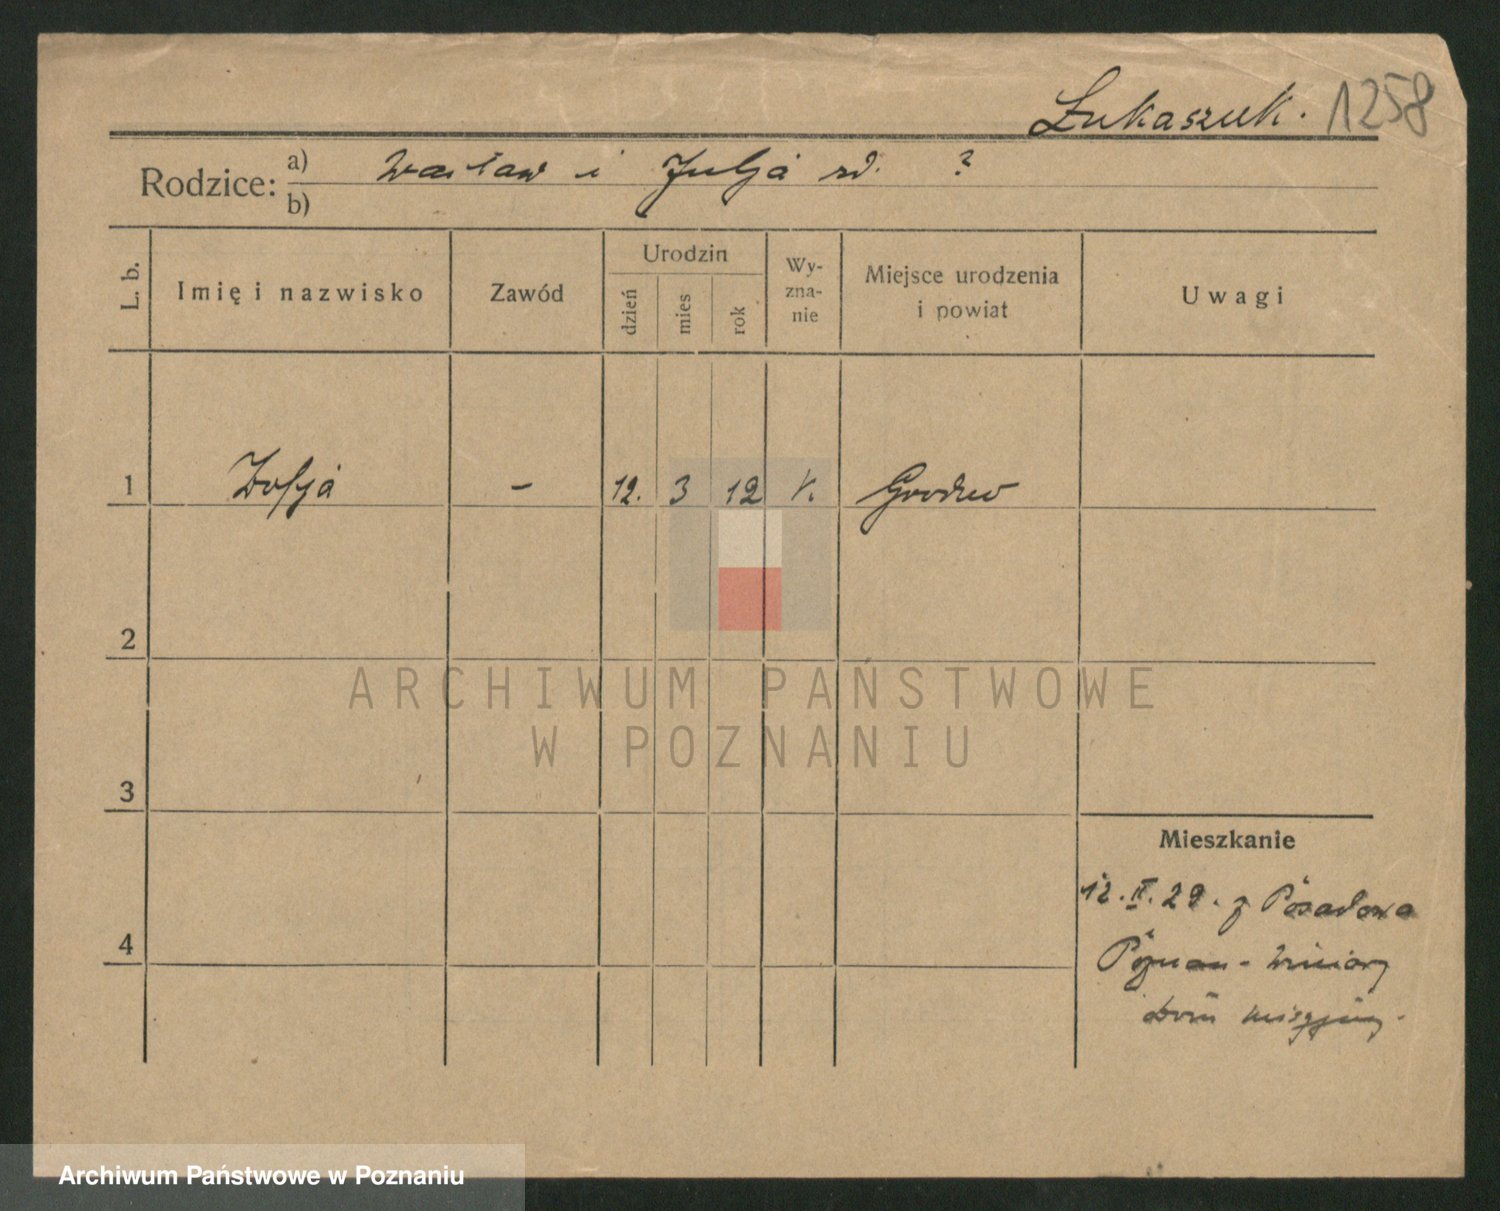 Łukaszuk. 1258
Rodzice: a) Wacław i Julja rd. ?
b)
L. b.
Imię i nazwisko
Zawód
Urodzin
dzień
mies
rok
Wy-
zna-
nie
Miejsce urodzenia
i powiat
Uwagi
1 Zofja - 12. 3 12 k.
2
3
4
Mieszkanie
12. II. 29. z Posadowa
Poznan - Winiary
Dom misyjny.
ARCHIWUM PAŃSTWOWE
W POZNANIU
Archiwum Państwowe w Poznaniu